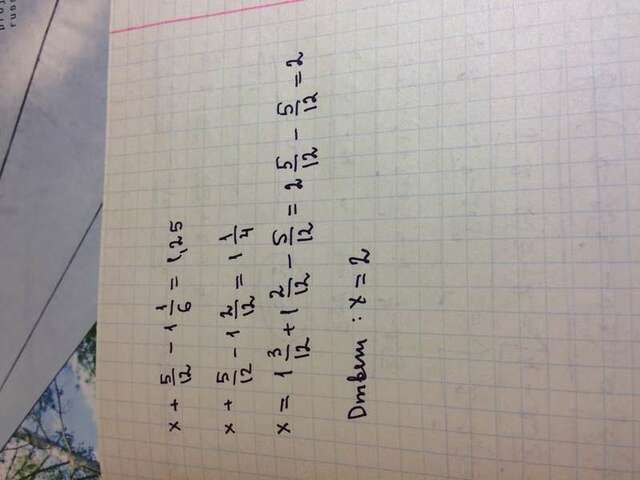 x + 5/12 - 1 1/6 = 1,25
x + 5/12 - 1 2/12 = 1 1/4
x = 1 3/12 + 1 2/12 - 5/12 = 2 5/12 - 5/12 = 2
Ответ : x = 2